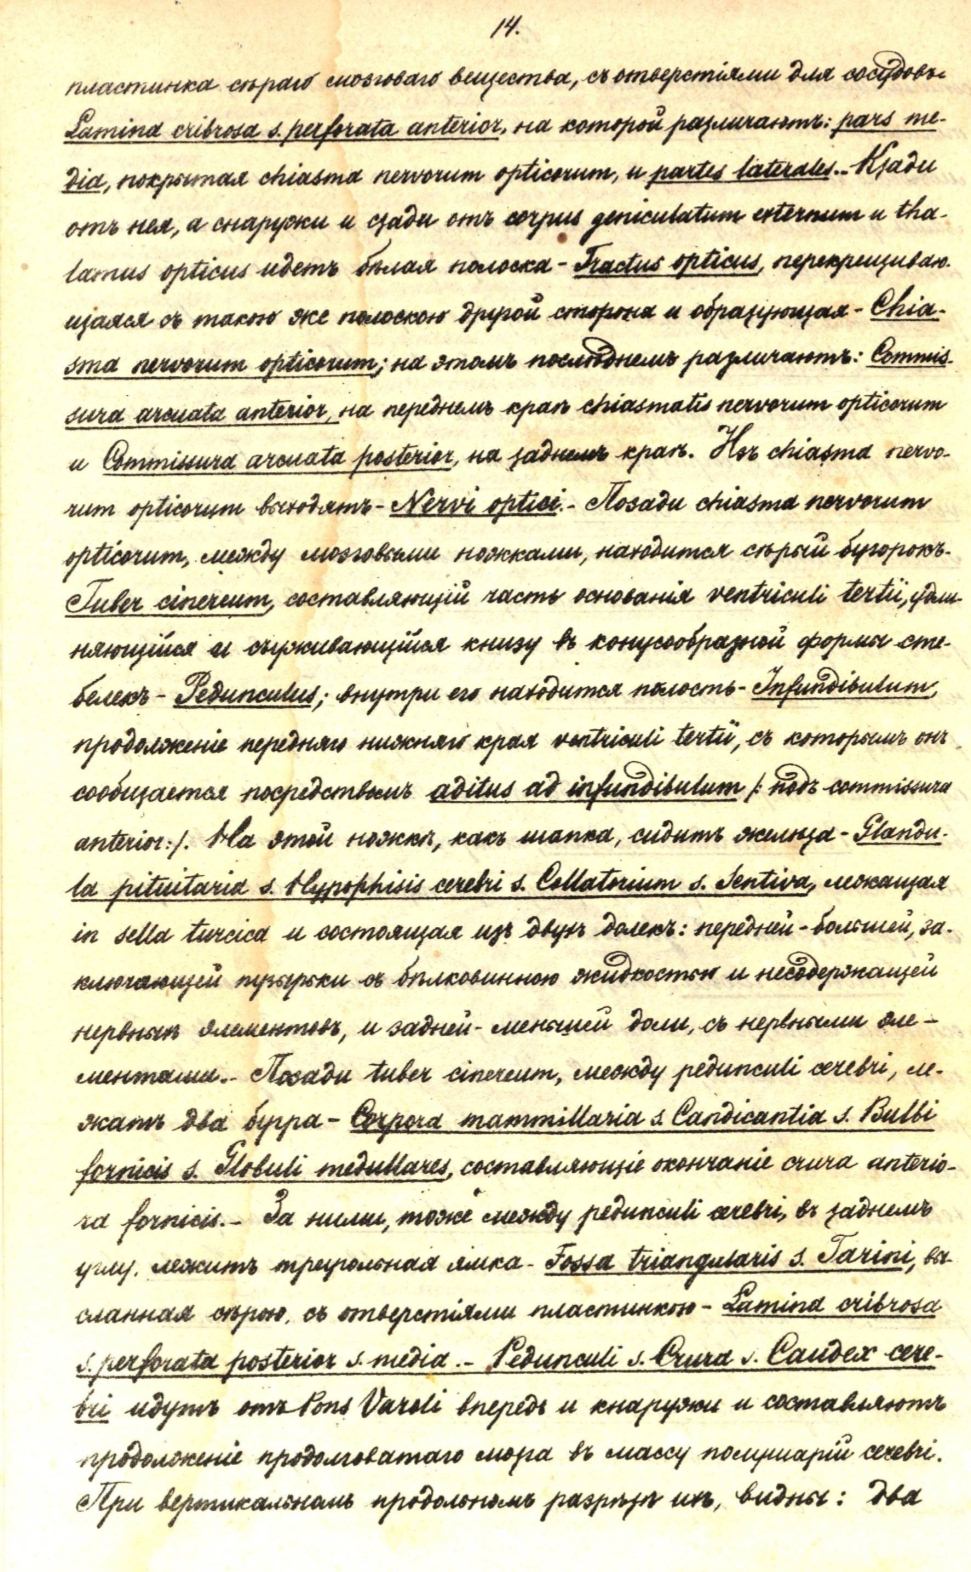 14.
пластинка сѣраго мозговаго вещества, съ отверстіями для сосудовъ-
Lamina cribrosa s. perforata anterior, на которой различаютъ: pars me-
dia, покрытая chiasma nervorum opticorum, и partes laterales.- Кзади
отъ нея, а снаружи и сзади отъ corpus geniculatum externum и tha-
lamus opticus идетъ бѣлая полоска - Tractus opticus, перекрещиваю-
щаяся съ такою же полоскою другой стороны и образующая - Chia-
sma nervorum opticorum; на этомъ послѣднемъ различаютъ: Commis-
sura arcuata anterior, на переднемъ краѣ chiasmatis nervorum opticorum
и Commissura arcuata posterior, на заднемъ краѣ. Изъ chiasma nervo-
rum opticorum выходятъ - Nervi optici.- Позади chiasma nervorum
opticorum, между мозговыми ножками, находится сѣрый бугорокъ-
Tuber cinereum, составляющій часть основанія ventriculi tertii, удли-
няющійся и съуживающійся книзу въ конусообразной формы сте-
белекъ - Pedunculus; внутри его находится полость - Infundibulum,
продолженіе передняго нижняго края ventriculi tertii, съ которымъ онъ
сообщается посредствомъ aditus ad infundibulum /: подъ commissura
anterior:/. На этой ножкѣ, какъ шапка, сидитъ желѣза - Glandu-
la pituitaria s. Hypophisis cerebri s. Collatorium s. Sentiva, лежащая
in sella turcica и состоящая изъ двухъ долекъ: передней - большей, за-
ключающей пузырьки съ бѣлковинною жидкостью и несодержащей
нервныхъ элементовъ, и задней - меньшей доли, съ нервными эле-
ментами.- Позади tuber cinereum, между pedunculi cerebri, ле-
жатъ два бугра - Corpora mammillaria s. Candicantia s. Bulbi
fornicis s. Globuli medullares, составляющіе окончаніе crura anterio-
ra fornicis.- За ними, тоже между pedunculi cerebri, въ заднемъ
углу, лежитъ треугольная ямка - Fossa triangularis s. Tarini, вы-
сланная сѣрою, съ отверстіями пластинкою - Lamina cribrosa
s. perforata posterior s. media.- Pedunculi s. Crura s. Caudex cere-
bri идутъ отъ Pons Varoli впередъ и кнаружи и составляютъ
продолженіе продолговатаго мозга въ массу полушарій cerebri.
При вертикальномъ продольномъ разрѣзѣ ихъ, видны: два